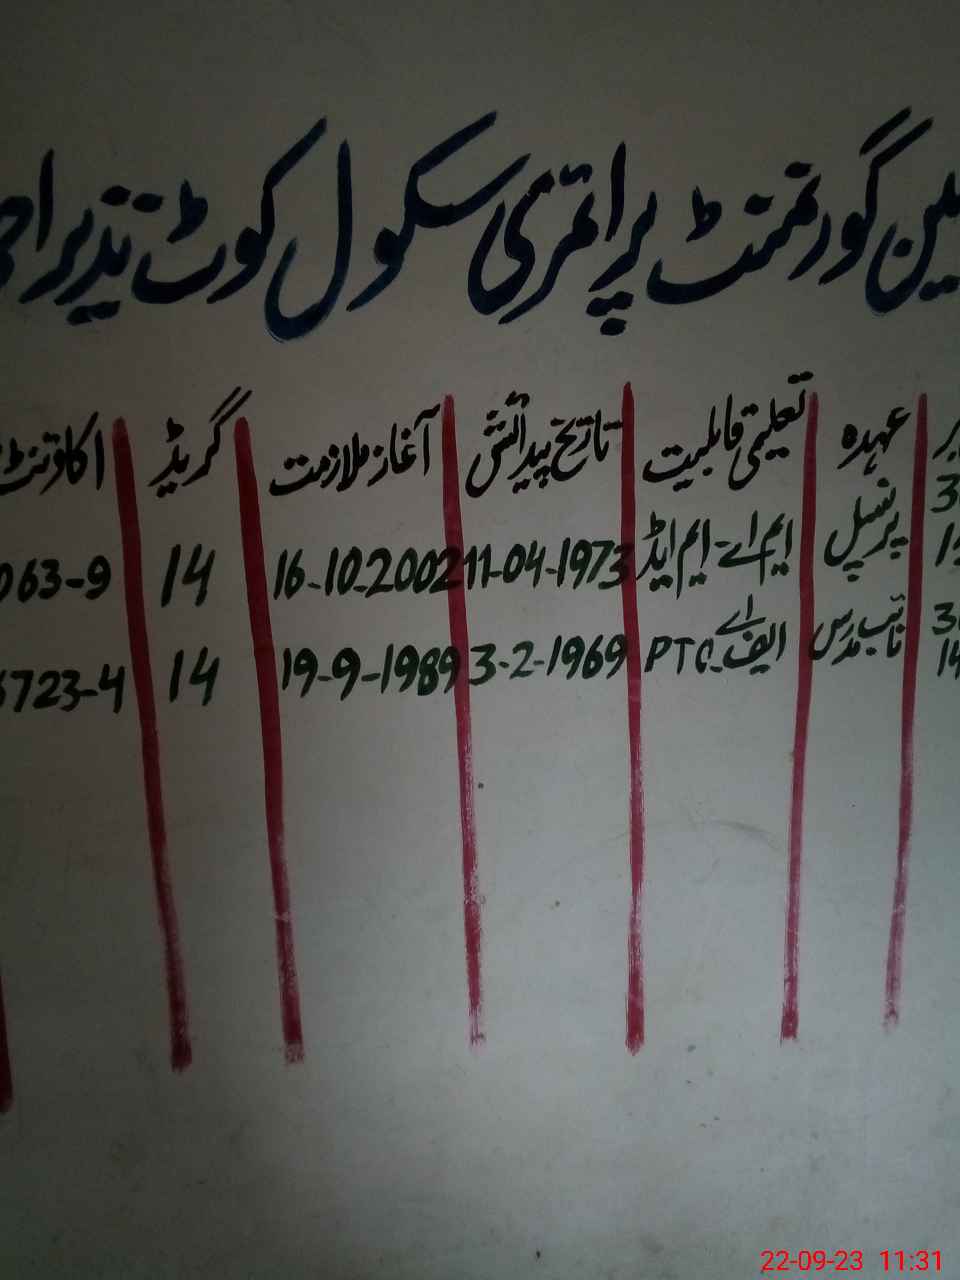 گورنمنٹ پرائمری سکول کوٹ نذیر
عہدہ تعلیمی قابلیت تاریخ پیدائش آغاز ملازمت گریڈ اکاؤنٹ
پرنسپل ایم اے - ایم ایڈ 11-04-1973 16-10-2002 14 063-9
نائب مدرس ایف اے PTC 3-2-1969 19-9-1989 14 6723-4
22-09-23 11:31